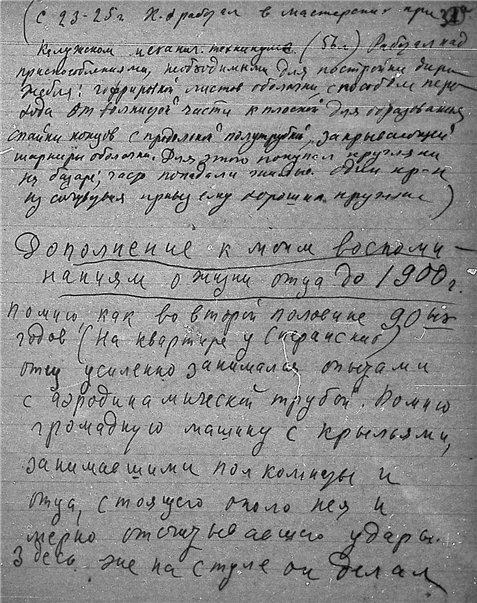 (С 23-25 г. К. Э. работал в мастерских при
Калужском механич. техникуме (5 в.) Работал над
приспособлениями, необходимыми для постройки дири-
жабля: гофрировка листов оболочки способом пере-
хода от волнистой части к плоской для образования
спайки концов с продольной полутрубой, закрывающей
шарниры оболочки. Для этого покупал
на базаре; часто попадали Один
из сочувств. привез ему хорошие
Дополнение к моим воспоми-
наниям о жизни отца до 1900 г.
Помню, как во второй половине 90ых
годов (На квартире у Сперанских)
отец усиленно занимался опытами
с аэродинамической трубой. Помню
громадную машину с крыльями,
занимавшими пол комнаты и
отца, стоящего около нея и
мерно отсчитывавшего удары.
Здесь же на стуле он делал